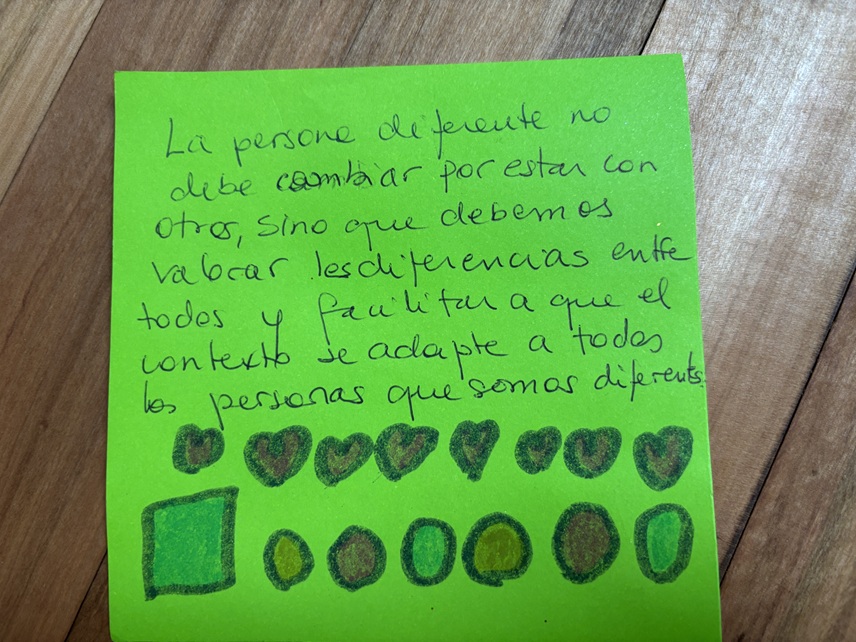 La persona diferente no
debe cambiar por estar con
otros, sino que debemos
valorar las diferencias entre
todos y facilitar a que el
contexto se adapte a todas
las personas que somos diferentes.